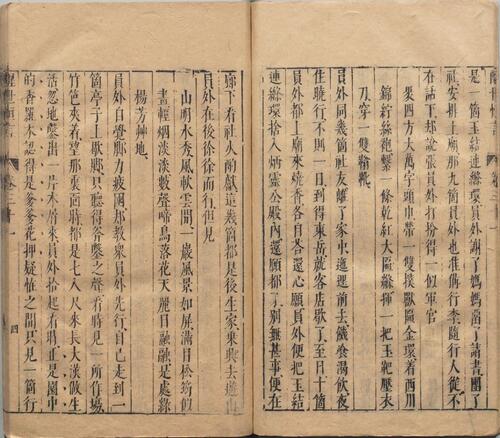 醒世恒言 卷三十一
是一箇玉結連絛環員外謝了媽媽留了請書團了
社安排上廟那九箇員外也准俻行李隨行人從不
在話下却說張員外打扮得一個軍官
裹四方大萬字頭巾帶一雙撲獸匾金環着西川
錦紵絲袍繫一條乾紅大匾絛揮一把玉靶壓衣
刀穿一雙靿靴
員外同幾箇社友離了家中迤邐前去饑食渴飲夜
住曉行不則一日到得東岳就客店歇了至日十箇
員外都上廟來燒香各自答還心願員外便把玉結
連絛環捨入炳靈公殿內還願都了別無甚事便在
廊下看社火酌獻這幾箇都是後生家乘興去遊山
員外在後徐徐而行但見
山明水秀風軟雲閒一巖風景如屏滿目松筠似
畫輕烟淡淡數聲啼鳥落花天麗日融融是處綠
楊芳艸地
員外自覺脚力疲困却教衆員外先行自己走到一
箇亭子上歇脚只聽得斧鑿之聲看時見一所作場
竹笆夾着望那裏面時都是七八尺來長大漢做生
活忽地鑿出一片木屑來員外拾起看時正是園中
的香羅木認得是爹爹花押疑恠之間只見一箇行
醒世恒言 卷三十一 四